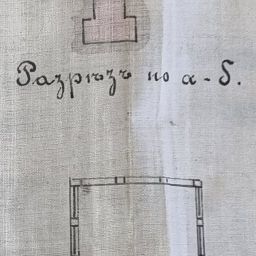 Разрѣзъ по а-б.